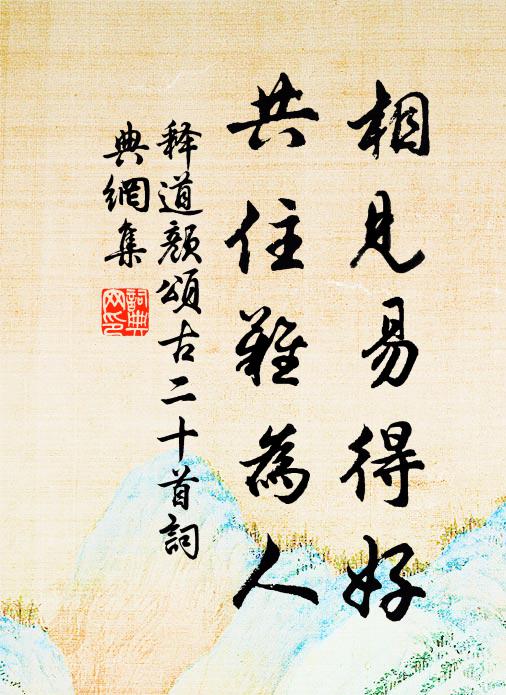 相見易得好
共住難為人
释道顏頌古二十首詞
典網集
詞典網印